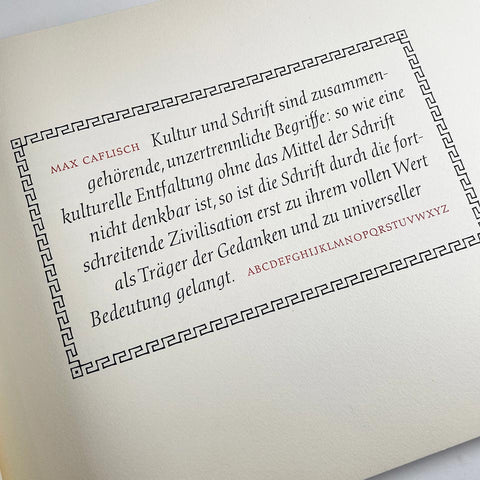 MAX CAFLISCH Kultur und Schrift sind zusammen-
gehörende, unzertrennliche Begriffe: so wie eine
kulturelle Entfaltung ohne das Mittel der Schrift
nicht denkbar ist, so ist die Schrift durch die fort-
schreitende Zivilisation erst zu ihrem vollen Wert
als Träger der Gedanken und zu universeller
Bedeutung gelangt. ABCDEFGHIJKLMNOPQRSTUVWXYZ